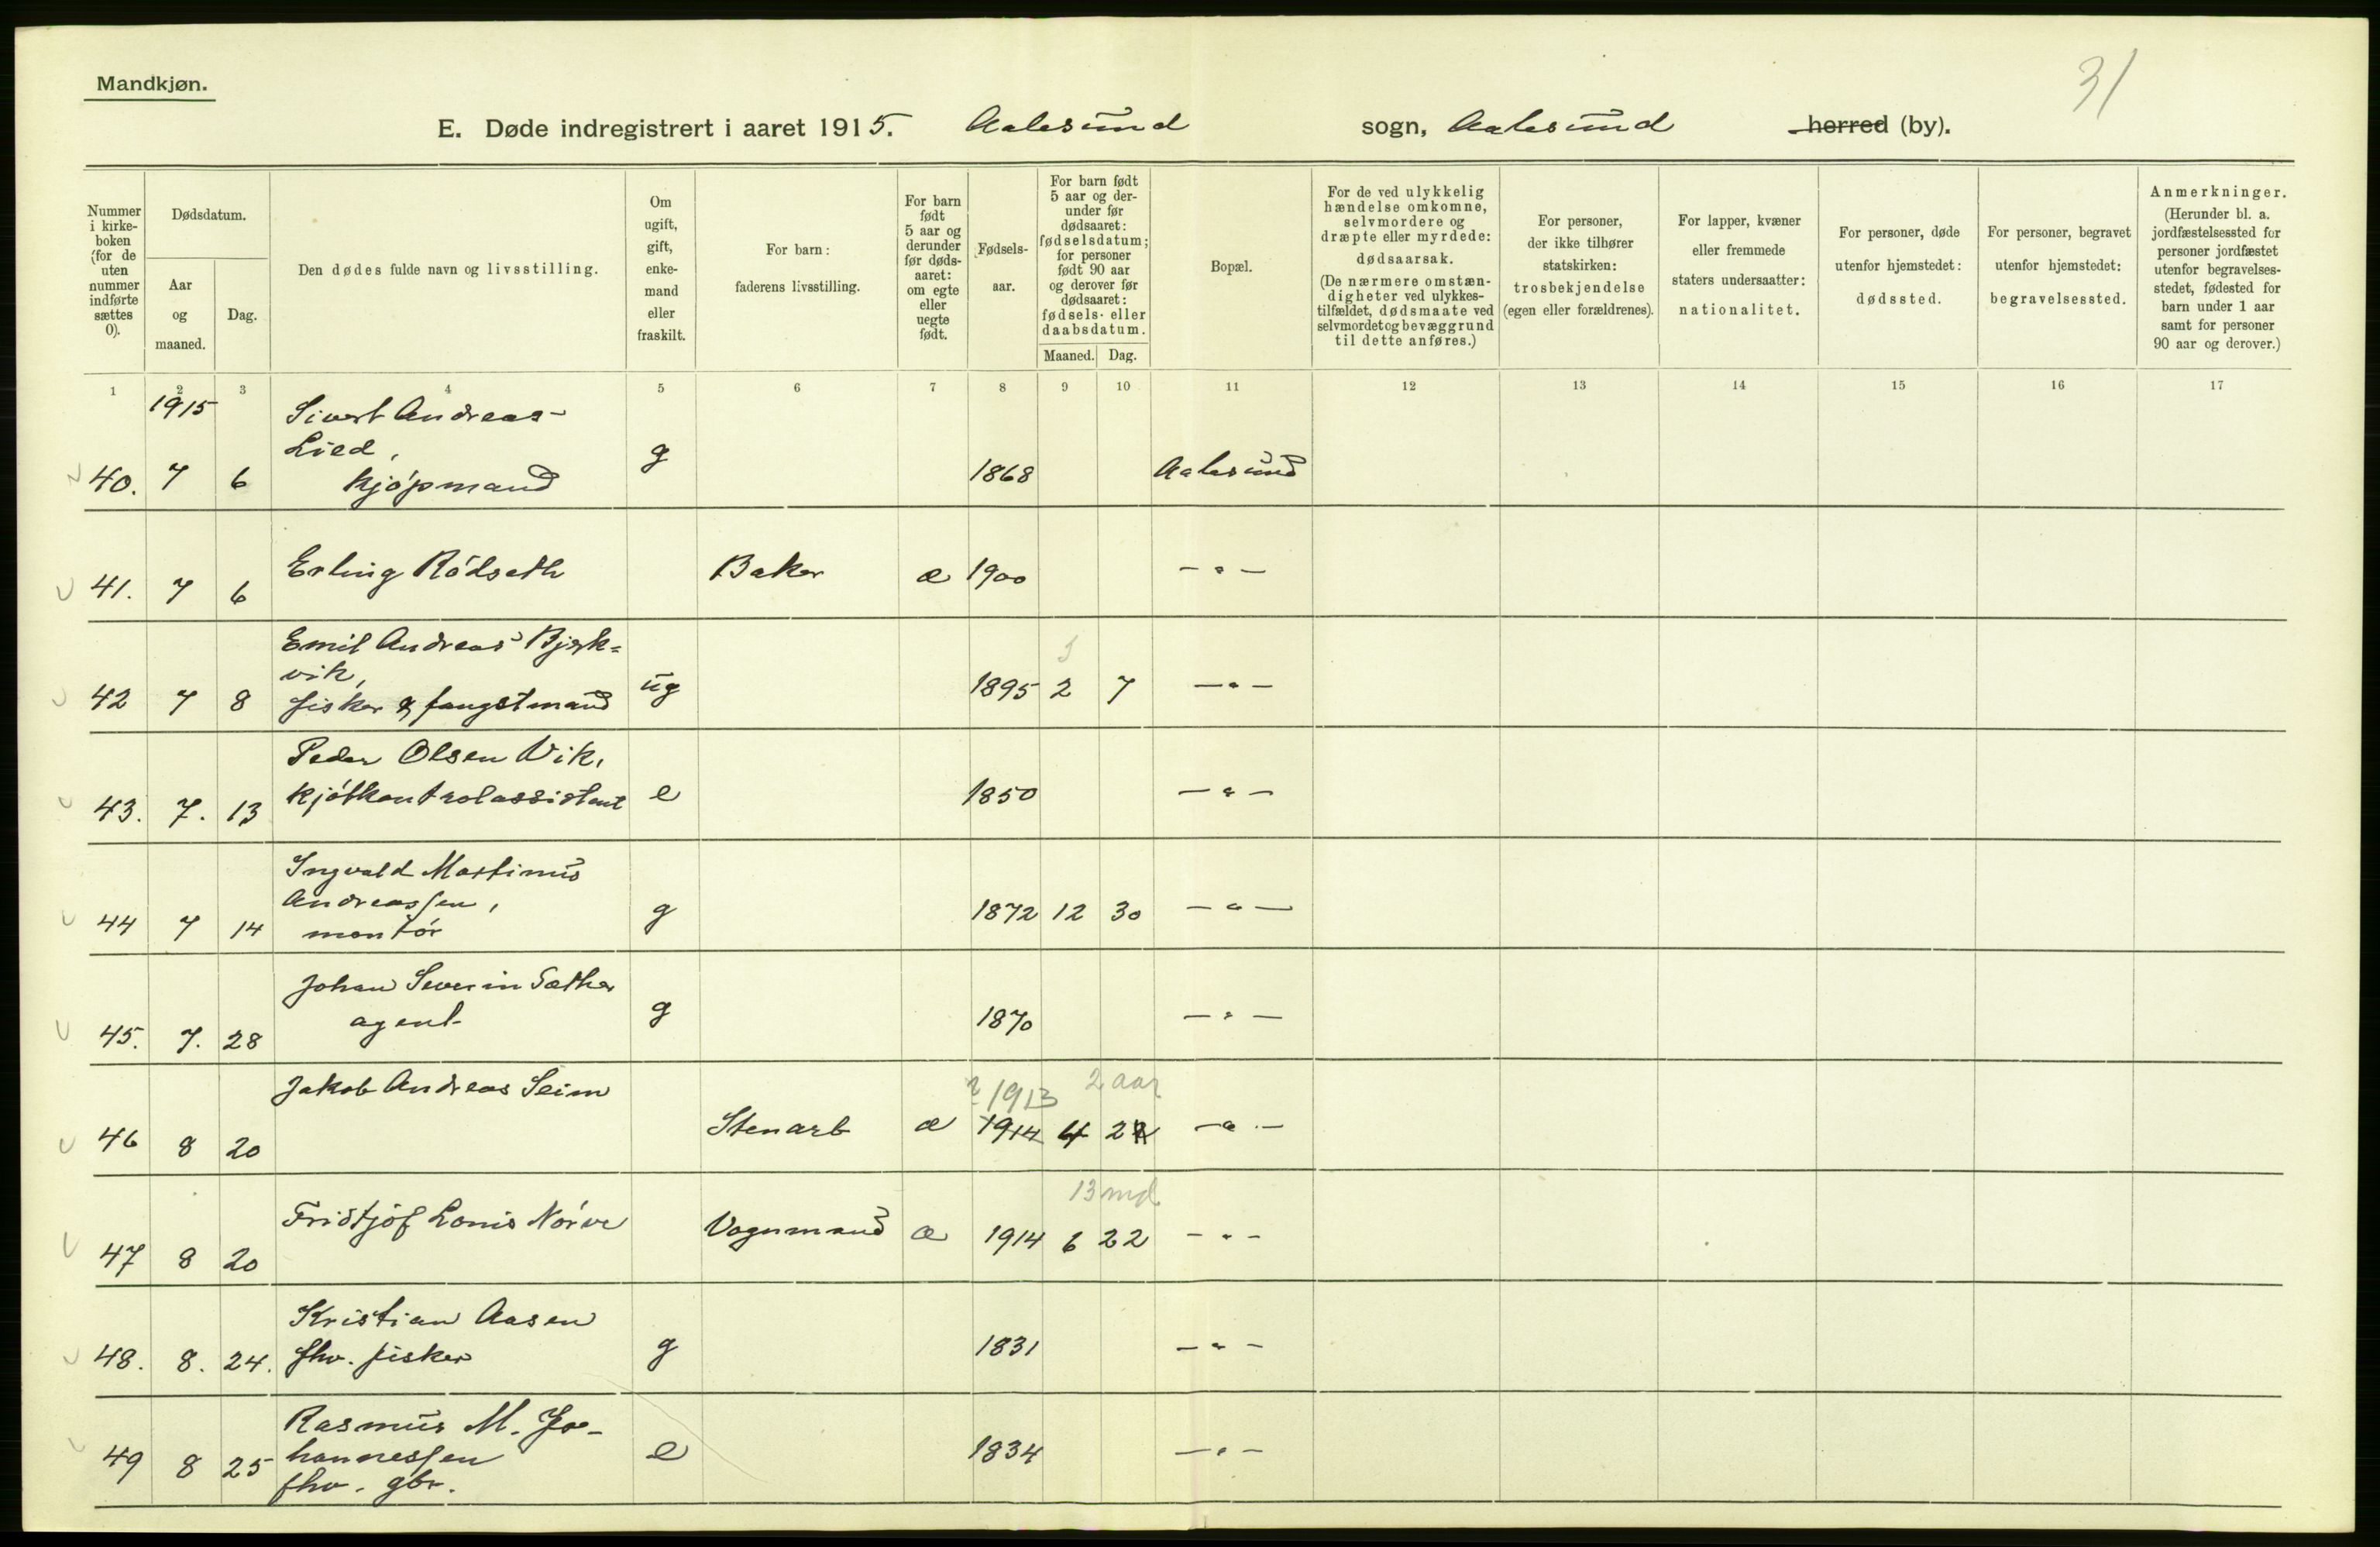 31
Mandkjøn.
E. Døde indregistrert i aaret 1915. Aalesund sogn, Aalesund herred (by).
Nummer i kirkeboken (for de uten nummer indførte sættes 0).
Dødsdatum.
Aar og maaned.
Dag.
Den dødes fulde navn og livsstilling.
Om ugift, gift, enkemand eller fraskilt.
For barn: faderens livsstilling.
For barn født 5 aar og derunder før dødsaaret: om egte eller uegte født.
Fødselsaar.
For barn født 5 aar og derunder før dødsaaret: fødselsdatum; for personer født 90 aar og derover før dødsaaret: fødsels- eller daabsdatum.
Maaned. Dag.
Bopæl.
For de ved ulykkelig hændelse omkomne, selvmordere og dræpte eller myrdede: dødsaarsak.
(De nærmere omstændigheter ved ulykkestilfældet, dødsmaate ved selvmordet og bevæggrund til dette anføres.)
For personer, der ikke tilhører statskirken: trosbekjendelse (egen eller forældrenes).
For lapper, kvæner eller fremmede staters undersaatter: nationalitet.
For personer, døde utenfor hjemstedet: dødssted.
For personer, begravet utenfor hjemstedet: begravelsessted.
Anmerkninger.
(Herunder bl. a. jordfæstelsessted for personer jordfæstet utenfor begravelsesstedet, fødested for barn under 1 aar samt for personer 90 aar og derover.)
1 2 3 4 5 6 7 8 9 10 11 12 13 14 15 16 17
1915
Sivert Andreas
Lied,
40. 7 6 kjøpmand g 1868 Aalesund
41. 7 6 Erling Rödseth Baker æ 1900 — " —
Emil Andreas Bjørk=
vik,
42 7 8 fisker & fangstmand ug 1895 2 7 — " —
Peder Olsen Vik,
43. 7. 13 kjötkontrolassistent e 1850 — " —
Ingvald Martinus
Andreassen,
44 7 14 montör g 1872 12 30 — " —
Johan Severin Sæther
45. 7. 28 agent g 1870 — " —
Jakob Andreas Seim
1913 2 aar
46 8 20 Stenarb æ 1914 4 22 — " —
13 md.
47 8 20 Fridtjöf Lonis Nörve Vognmand æ 1914 6 22 — " —
Kristian Aasen
48. 8. 24. fhv. fisker g 1831 — " —
Rasmus M. Jo-
49 8 25 hannessen e 1834 — " —
fhv. gbr.